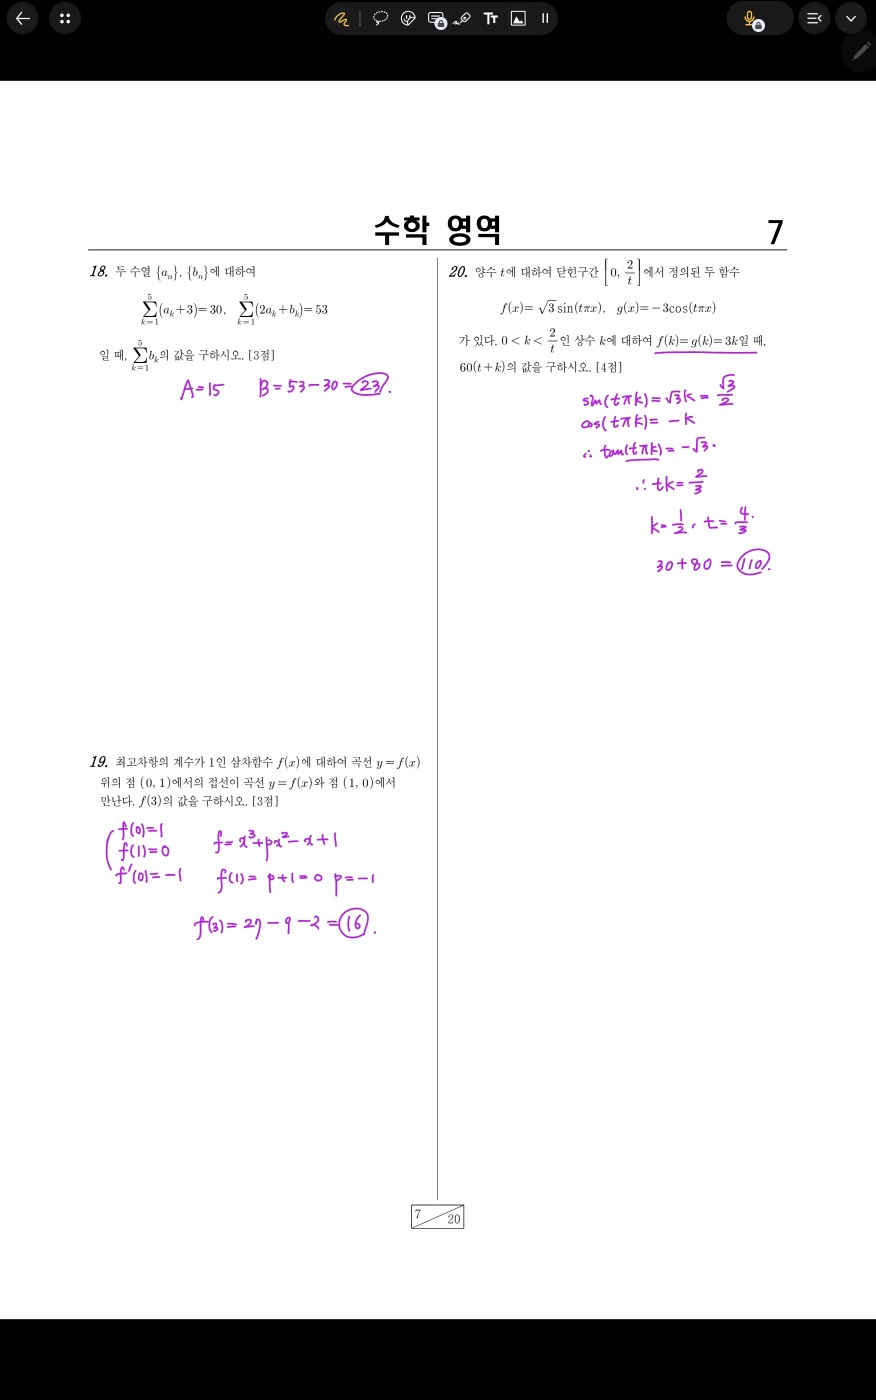 Tт
수학 영역
7
18. 두 수열 {aₙ}, {bₙ}에 대하여
∑_{k=1}^{5}(aₖ+3)=30, ∑_{k=1}^{5}(2aₖ+bₖ)=53
일 때, ∑_{k=1}^{5}bₖ의 값을 구하시오. [3점]
A=15 B=53-30=23.
19. 최고차항의 계수가 1인 삼차함수 f(x)에 대하여 곡선 y=f(x)
위의 점 (0, 1)에서의 접선이 곡선 y=f(x)와 점 (1, 0)에서
만난다. f(3)의 값을 구하시오. [3점]
f(0)=1
f(1)=0
f'(0)=-1
f=x³+px²-x+1
f(1)= p+1=0 p=-1
f(3)=27-9-2=16.
20. 양수 t에 대하여 닫힌구간 [0, 2/t]에서 정의된 두 함수
f(x)=√3sin(tπx), g(x)=-3cos(tπx)
가 있다. 0<k<2/t인 상수 k에 대하여 f(k)=g(k)=3k일 때,
60(t+k)의 값을 구하시오. [4점]
sin(tπk)=√3k=√3/2
cos(tπk)= -k
∴ tan(tπk)=-√3.
∴ tk=2/3
k=1/2, t=4/3.
30+80 =110.
7/20